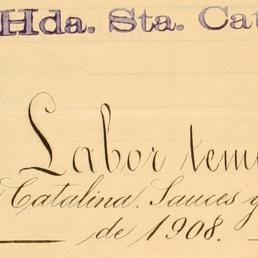 Hda. Sta. Cat
Labor tem
Catalina. Sauces y
de 1908.